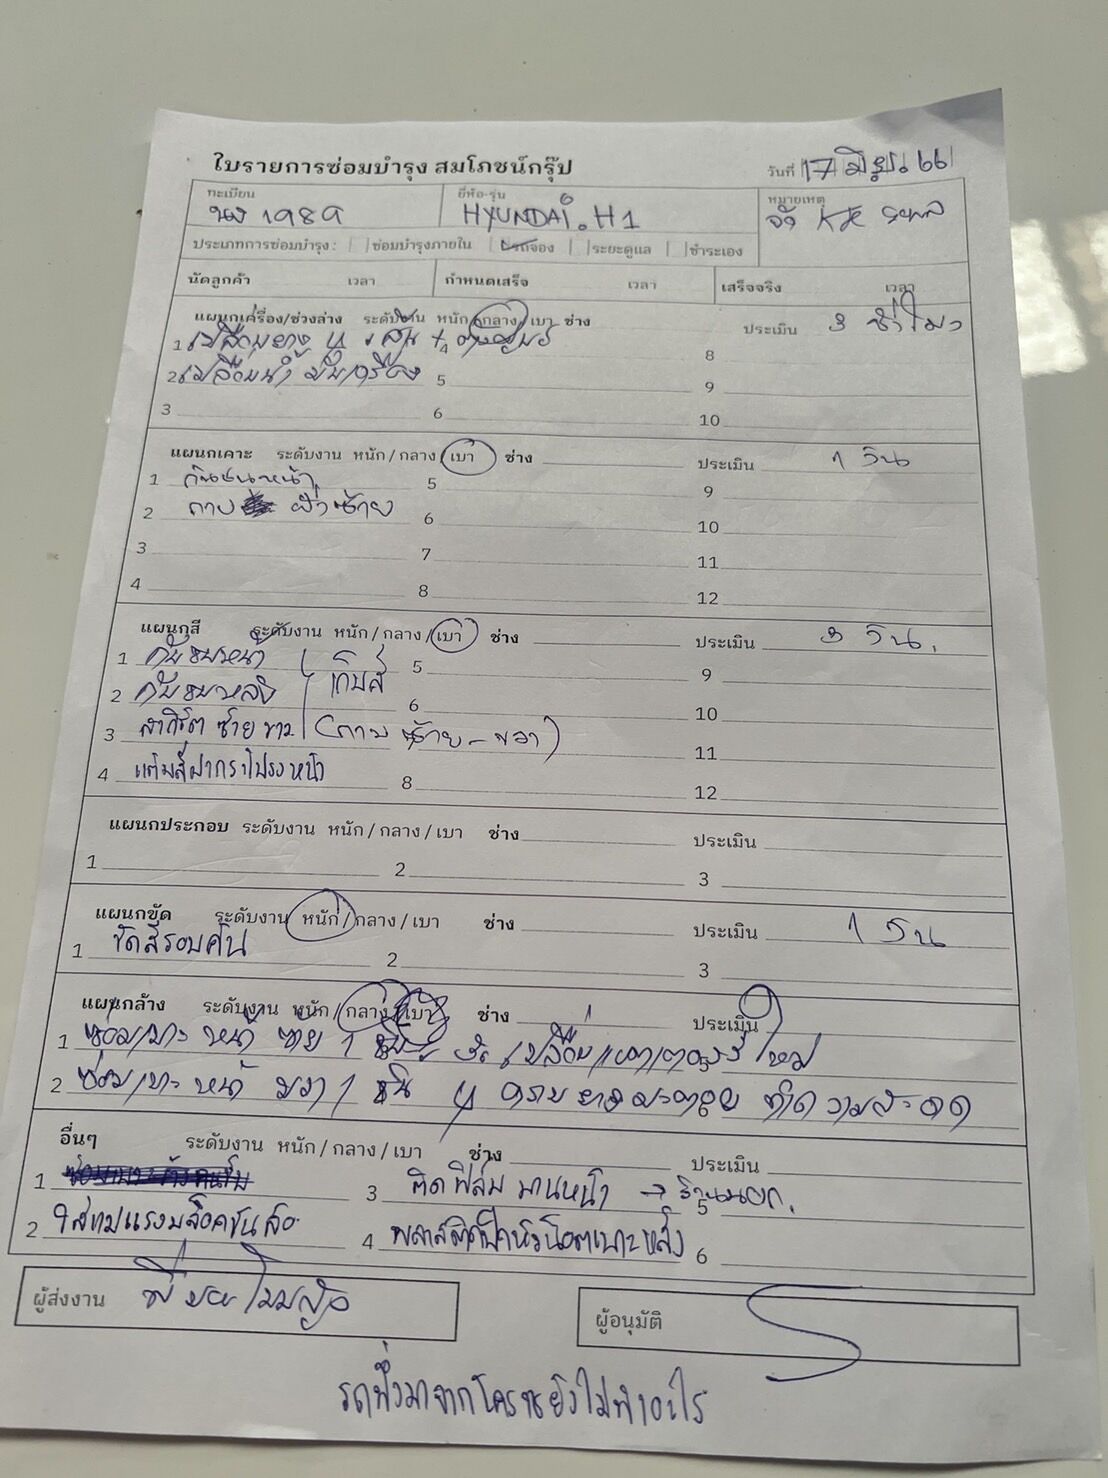 ใบรายการซ่อมบำรุง สมโภชน์กรุ๊ป
วันที่ 17 มิย. 66
ทะเบียน ยี่ห้อ-รุ่น หมายเหตุ
นง 1989 HYUNDAI. H1
ประเภทการซ่อมบำรุง : ซ่อมบำรุงภายใน รถจอง ระยะดูแล ชำระเอง
นัดลูกค้า เวลา กำหนดเสร็จ เวลา เสร็จจริง เวลา
แผนกเครื่อง/ช่วงล่าง ระดับงาน หนัก/กลาง/เบา ช่าง ประเมิน 3 ชั่วโมง
1 เปลี่ยนยาง 4 เส้น + 4 8
2 เปลี่ยนน้ำมันเครื่อง 5 9
3 6 10
แผนกเคาะ ระดับงาน หนัก/กลาง/เบา ช่าง ประเมิน 1 วัน
1 กันชนหน้า 5 9
2 กาบ ซ้าย 6 10
3 7 11
4 8 12
แผนกสี ระดับงาน หนัก/กลาง/เบา ช่าง ประเมิน 3 วัน.
1 กันชนหน้า เก็บสี 5 9
2 กันชนหลัง 6 10
3 สเกิร์ต ซ้าย ขวา (กาบ ซ้าย-ขวา) 11
4 แต้มสีฝากระโปรงหน้า 8 12
แผนกประกอบ ระดับงาน หนัก/กลาง/เบา ช่าง ประเมิน
1 2 3
แผนกขัด ระดับงาน หนัก/กลาง/เบา ช่าง ประเมิน 1 วัน
1 ขัดสีรอบคัน 2 3
แผนกล้าง ระดับงาน หนัก/กลาง/เบา ช่าง ประเมิน
1 ซ่อมเบาะ หน้า ซ้าย 1 เปลี่ยนแบตเตอรี่ ใหม่
2 ซ่อมเบาะ หน้า ขวา 1 ทำความสะอาด
อื่นๆ ระดับงาน หนัก/กลาง/เบา ช่าง ประเมิน
1 3 ติดฟิล์ม บานหน้า → ร้านนอก. 5
2 ใส่แม่แรงบล็อคขันล้อ 4 พลาสติกปิดหัวน็อตเบาะหลัง 6
ผู้ส่งงาน
ผู้อนุมัติ
รถพึ่งมาจากโคราชยังไม่ทำอะไร